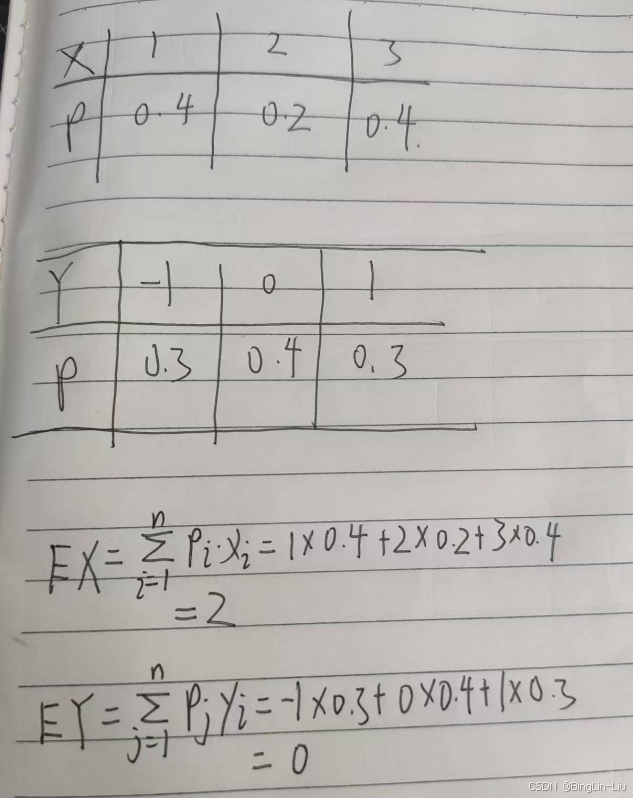 X 1 2 3
P 0.4 0.2 0.4.
Y -1 0 1
P 0.3 0.4 0.3
EX = \sum_{i=1}^{n} P_i·X_i = 1×0.4+2×0.2+3×0.4
=2
EY = \sum_{j=1}^{n} P_j Y_i = -1×0.3+0×0.4+1×0.3
= 0
CSDN @BingLin-Liu